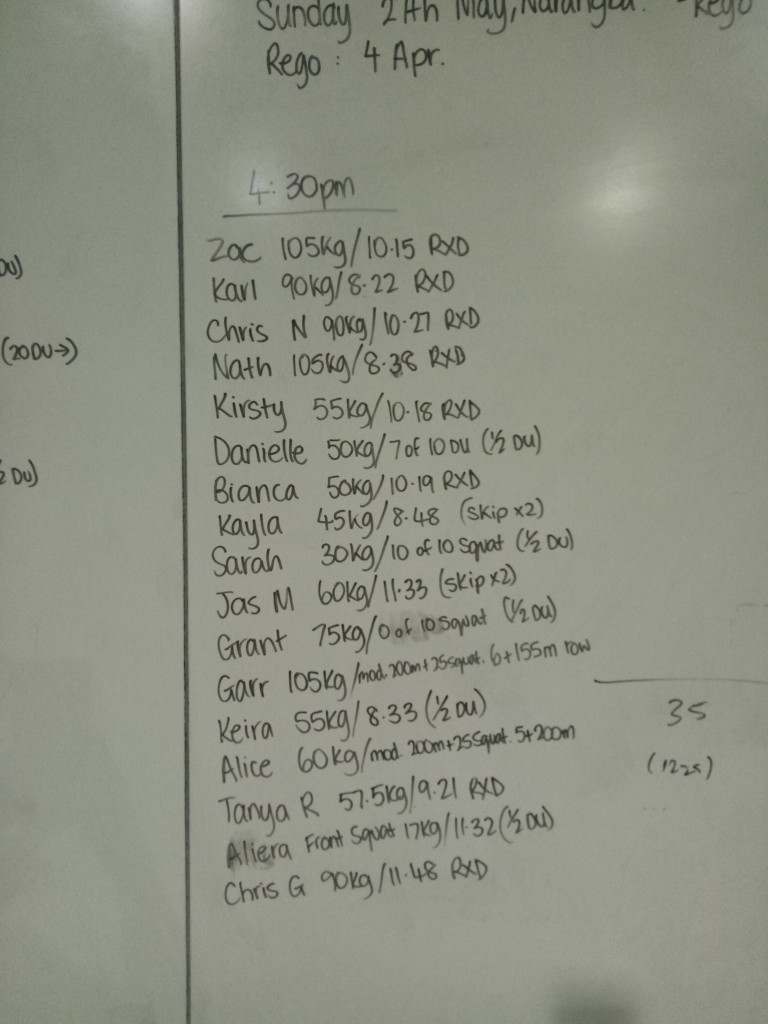 Sunday 24th May, Narangba. - Rego
Rego : 4 Apr.
4:30pm
DU)
(20DU→)
2 DU)
Zac 105kg/10.15 RXD
Karl 90kg/8.22 RXD
Chris N 90kg/10.27 RXD
Nath 105kg/8.38 RXD
Kirsty 55kg/10.18 RXD
Danielle 50kg/7 of 10 DU (½ DU)
Bianca 50kg/10.19 RXD
Kayla 45kg/8.48 (skip x2)
Sarah 30kg/10 of 10 squat (½ DU)
Jas M 60kg/11.33 (skip x2)
Grant 75kg/0 of 10 squat (½ DU)
Garr 105kg/mod. 200m+25squat. 6+155m row
Keira 55kg/8.33 (½ DU)
Alice 60kg/mod. 200m+25squat. 5+200m
Tanya R 57.5kg/9.21 RXD
Aliera Front Squat 17kg/11.32 (½ DU)
Chris G 90kg/11.48 RXD
35